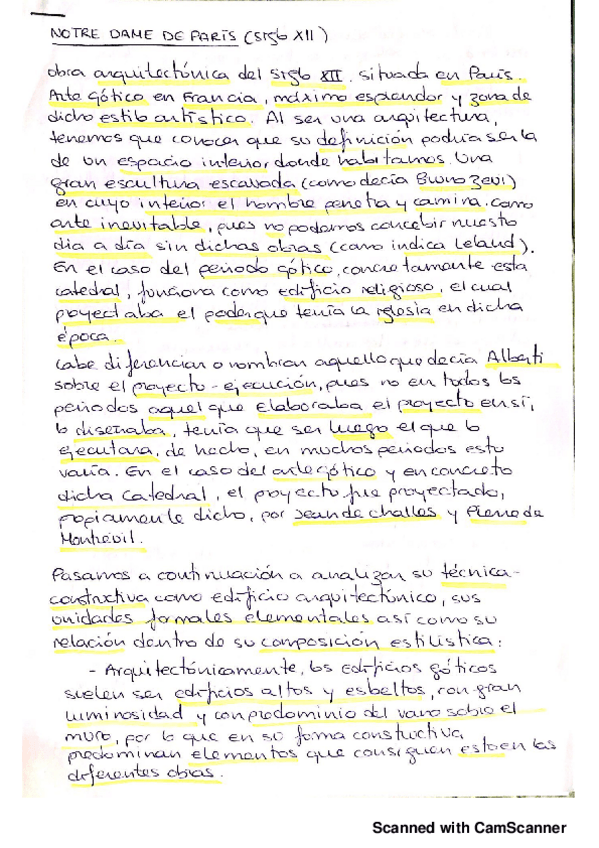 NOTRE DAME DE PARÍS (siglo XII)
obra arquitectónica del siglo XII. situada en París.
Arte gótico en Francia, máximo esplendor y zona de
dicho estilo artístico. Al ser una arquitectura,
tenemos que conocer que su definición podría ser la
de un espacio interior, donde habitamos. Una
gran escultura escavada (como decía Bruno Zevi)
en cuyo interior el hombre penetra y camina. Como
arte inevitable, pues no podamos concebir nuestro
día a día sin dichas obras (como indica Leland).
En el caso del periodo gótico, concretamente esta
catedral, funciona como edificio religioso, el cual
proyectaba el poder que tenía la iglesia en dicha
época.
Cabe diferenciar o nombrar aquello que decía Alberti
sobre el proyecto - ejecución, pues no en todos los
periodos aquel que elaboraba el proyecto en sí,
lo diseñaba, tenía que ser luego el que lo
ejecutara, de hecho, en muchos periodos esto
varía. En el caso del arte gótico y en concreto
dicha catedral, el proyecto fue proyectado,
propiamente dicho, por Jean de challes y Pierre de
Montrevil.
Pasamos a continuación a analizar su técnica-
constructiva como edificio arquitectónico, sus
unidades formales elementales así como su
relación dentro de su composición estilística:
- Arquitectónicamente, los edificios góticos
suelen ser edificios altos y esbeltos, con gran
luminosidad y con predominio del vano sobre el
muro, por lo que en su forma constructiva
predominan elementos que consiguen esto en las
diferentes obras.
Scanned with CamScanner